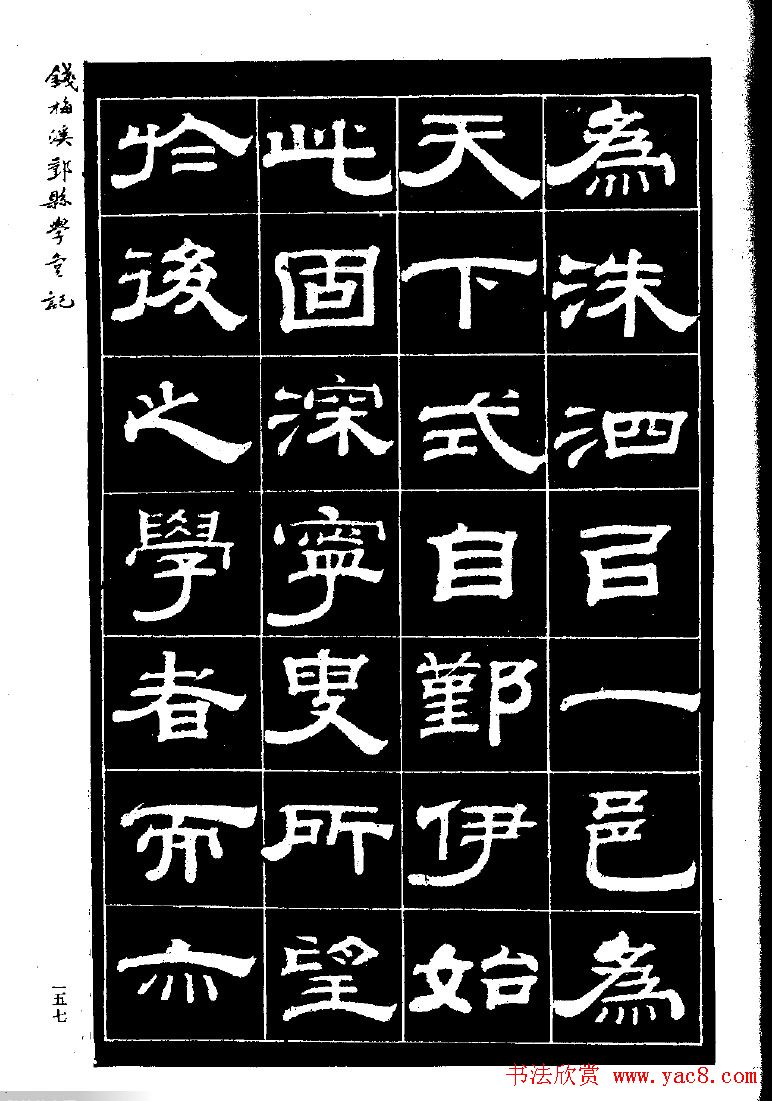 為洙泗㠯一邑為
天下式自鄞伊始
此固深寧叟所望
於後之學者而亦
錢梅溪鄞縣學堂記
一五七
书法欣赏 www.yac8.com